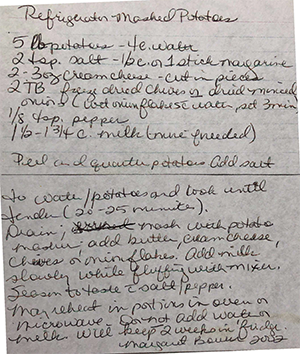 Refrigerator Mashed Potatoes
5 lb potatoes - 4c. water
2 tsp. salt - 1/2 c. or 1 stick margarine
2 - 3oz cream cheese - cut in pieces
2 TB freeze dried chives or dried minced
onions ( onion flakes water, set 3 min
1/8 tsp. pepper
1 1/2 - 1 3/4 c. milk (more if needed)
Peel and quarter potatoes Add salt
to water/potatoes and cook until
tender (20-25 minutes).
Drain; mash with potato
masher; add butter, cream cheese,
chives or onion flakes. Add milk
slowly while fluffy with mixer.
Season to taste - salt/pepper.
May reheat in portions in oven or
microwave. Do not add water or
milk. Will keep 2 weeks in fridge.
Margaret 2002